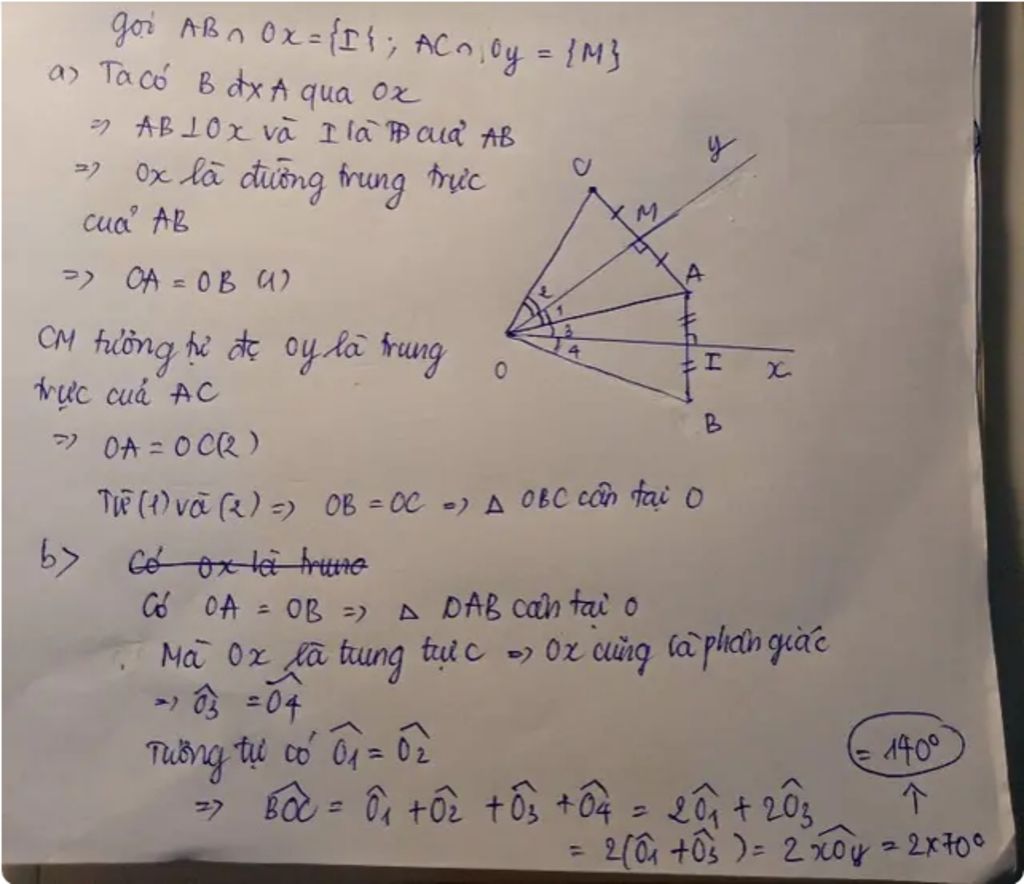 gọi AB ∩ Ox = {I} ; AC ∩ Oy = {M}
a) Ta có B đx A qua Ox
=> AB ⊥ Ox và I là TĐ của AB
=> Ox là đường trung trực
của AB
=> OA = OB (1)
CM tương tự đc Oy là trung
trực của AC
=> OA = OC (2)
Từ (1) và (2) => OB = OC => Δ OBC cân tại O
b) Có Ox là trung
Có OA = OB => Δ OAB cân tại O
Mà Ox là trung trực => Ox cũng là phân giác
=> Ô3 = Ô4
Tương tự có Ô1 = Ô2
=> BÔC = Ô1 + Ô2 + Ô3 + Ô4 = 2Ô1 + 2Ô3
= 2(Ô1 + Ô3) = 2 xÔy = 2x70°
= 140°
y
C
M
A
2
1
3
4
O
I
x
B